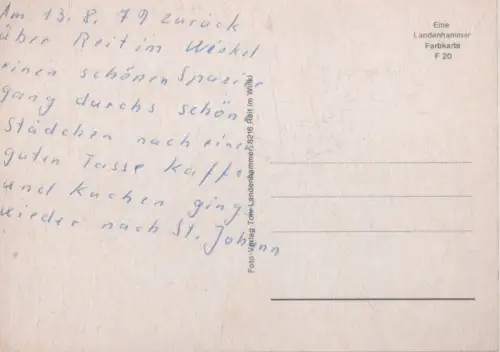 Am 13. 8. 79 zurück
über Reit im Winkel
einen schönen Spazier
gang durchs schön
Städchen nach einer
guten Tasse Kaffe
und Kuchen ging
wieder nach St. Johann
Eine
Landenhammer
Farbkarte
F 20
Foto-Verlag Toni Landenhammer, 8216 Reit im Winkl